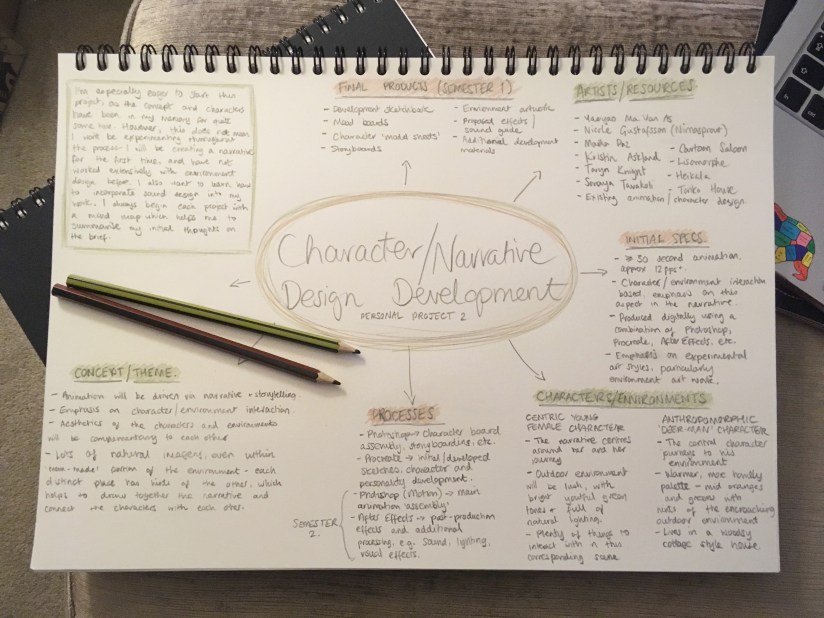 I'm especially eager to start this
project, as the concept and characters
have been in my memory for quite
some time. However, this does not mean
I wont be experimenting throughout
the process - I will be creating a narrative
for the first time, and have not
worked extensively with environment
design before. I also want to learn how
to incorporate sound design into my
work. I always begin each project with
a mind map which helps me to
summarise my initial thoughts on
the brief.
FINAL PRODUCTS (SEMESTER 1)
- Development sketchbook
- Mood boards
- Character 'model sheets'
- Storyboards
- Environment artwork
- Proposed effects /
sound guide
- Additional development
materials
ARTISTS/RESOURCES
- Yueyao Ma Van As
- Nicole Gustafsson (Nimasprout)
- Kristin Askland
- Taryn Knight
- Existing animation/character design.
- Cartoon Saloon
- Heikala
- Tonko House
Character/Narrative
Design Development
PERSONAL PROJECT 2
INITIAL SPECS.
30 second animation,
approx 12 fps.
- Character/environment interaction
based, emphasis on this
aspect in the narrative.
- Produced digitally using a
combination of Photoshop,
Procreate, After Effects, etc.
- Emphasis on experimental
art styles, particularly
environment art
CONCEPT/THEME.
- Animation will be driven via narrative + storytelling
- Emphasis on character/environment interaction.
- Aesthetics of the characters and environments
will be complementary to each other
- Lots of natural imagery, even within
'man-made' portion of the environment - each
distinct place has hints of the other, which
helps to draw together the narrative and
connect the characters with each other.
PROCESSES
- Photoshop → Character board
assembly, storyboarding, etc.
- Procreate → initial/developed
sketches, character and
personality development.
- Photoshop (Motion) → main
animation 'assembly'.
- After Effects → post-production
effects and additional
processing, e.g. sound, lighting,
visual effects.
SEMESTER
2.
CHARACTERS/ENVIRONMENTS
CENTRIC YOUNG
FEMALE CHARACTER
- The narrative centres
around her and her
journey
- Outdoor environment
will be lush, with
bright youthful green
tones + full of
natural lighting.
- Plenty of things to
interact with in this
corresponding scene
ANTHROPOMORPHIC
'DEER-MAN' CHARACTER
- The central character
journeys to his
environment
- Warmer, more homely
palette - mid oranges
and greens with
hints of the encroaching
outdoor environment
- Lives in a woodsy
cottage style house.